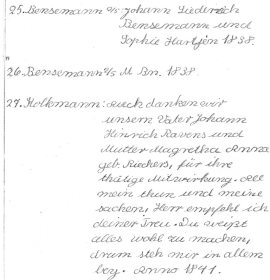 25. Bensemann a/s Johann Diederich
Bensemann und
Sophie Hartjen 1838.
26. Bensemann a/s M Bm. 1838.
27. Holtmann: Auch danken wir
unsern Vater Johann
Hinrich Ravens und
Mutter Magretha Anna
geb. Riechers, für ihre
thätige Mitwirkung. All
mein thun und meine
sachen, Herr empfehl ich
deiner Treu. Du weißt
alles wohl zu machen,
drum steh mir in allem
bey. Anno 1841.